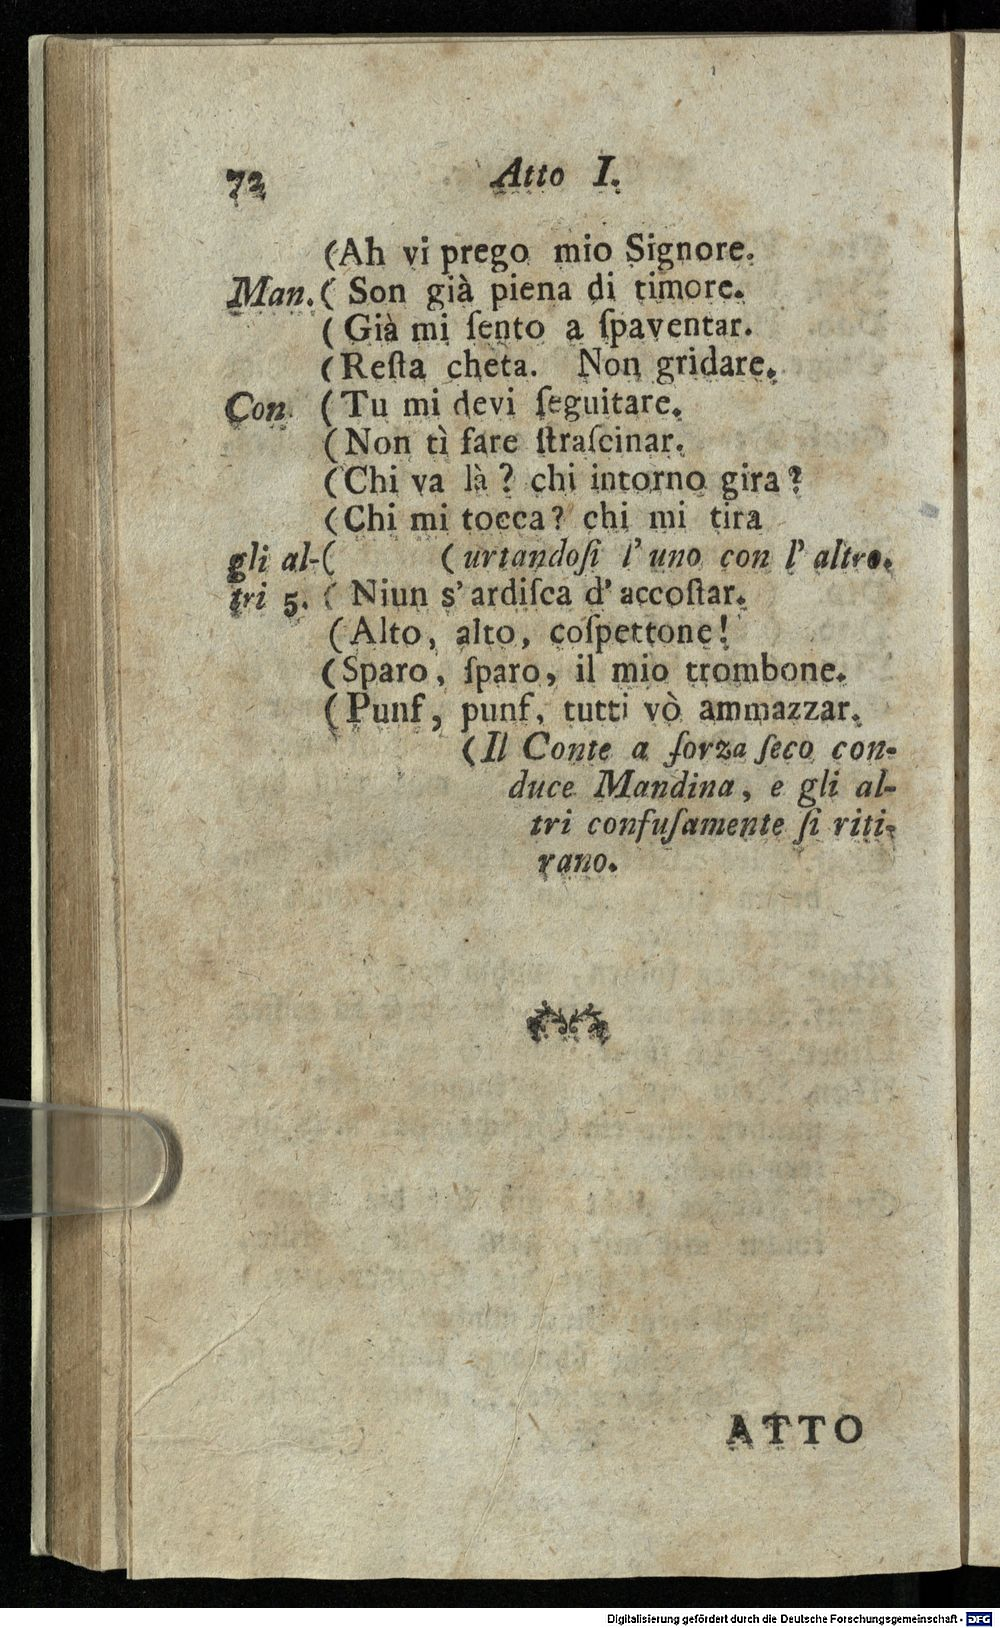 72 Atto I.
(Ah vi prego mio Signore.
Man. ( Son già piena di timore.
( Già mi ſento a ſpaventar.
(Reſta cheta. Non gridare.
Con. (Tu mi devi ſeguitare.
(Non tì fare ſtraſcinar.
(Chi va là? chi intorno gira?
(Chi mi tocca? chi mi tira
gli al-( (urtandoſi l'uno con l'altro.
tri 5. ( Niun s'ardiſca d'accoſtar.
(Alto, alto, coſpettone!
(Sparo, ſparo, il mio trombone.
(Punf, punf, tutti vò ammazzar.
(Il Conte a forza ſeco con-
duce Mandina, e gli al-
tri confuſamente ſi riti-
rano.
ATTO
Digitalisierung gefördert durch die Deutsche Forschungsgemeinschaft - DFG